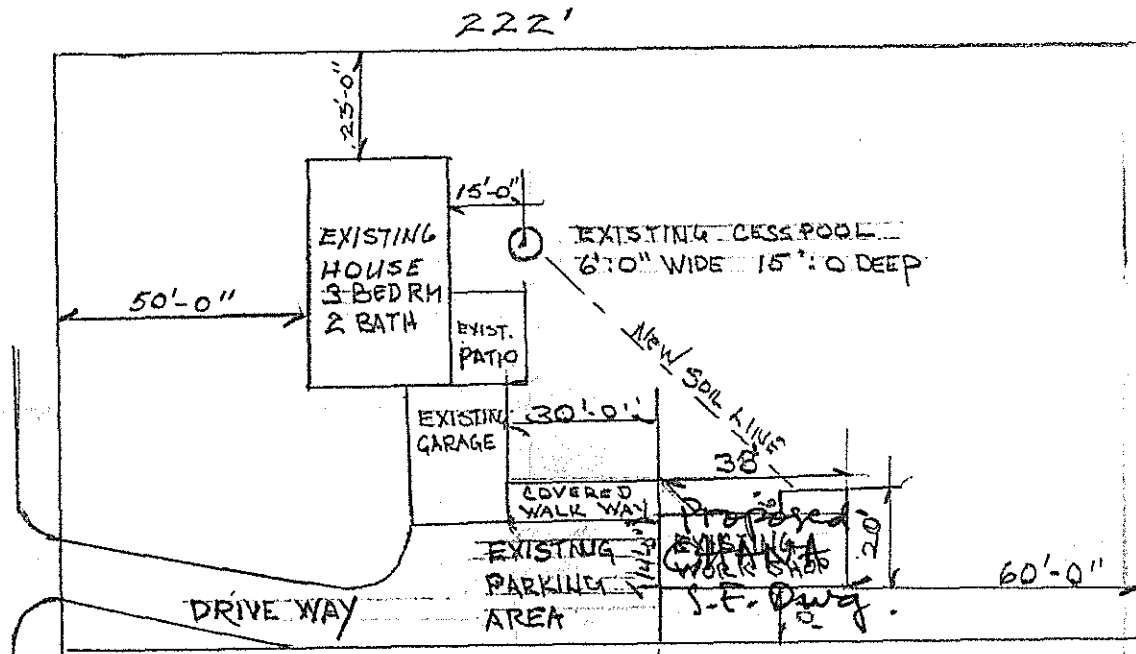 222'
25'-0"
15'-0"
EXISTING
HOUSE
3 BEDRM
2 BATH
EXISTING CESSPOOL
6':0" WIDE 15':0 DEEP
50'-0"
EXIST.
PATIO
NEW SOIL LINE
EXISTING
GARAGE
30'-0"
38'
COVERED
WALK WAY
Proposed
20'
EXISTNUG
PARKING
AREA
EXISTING
WORK SHOP
S.F. Dwg.
60'-0"
DRIVE WAY